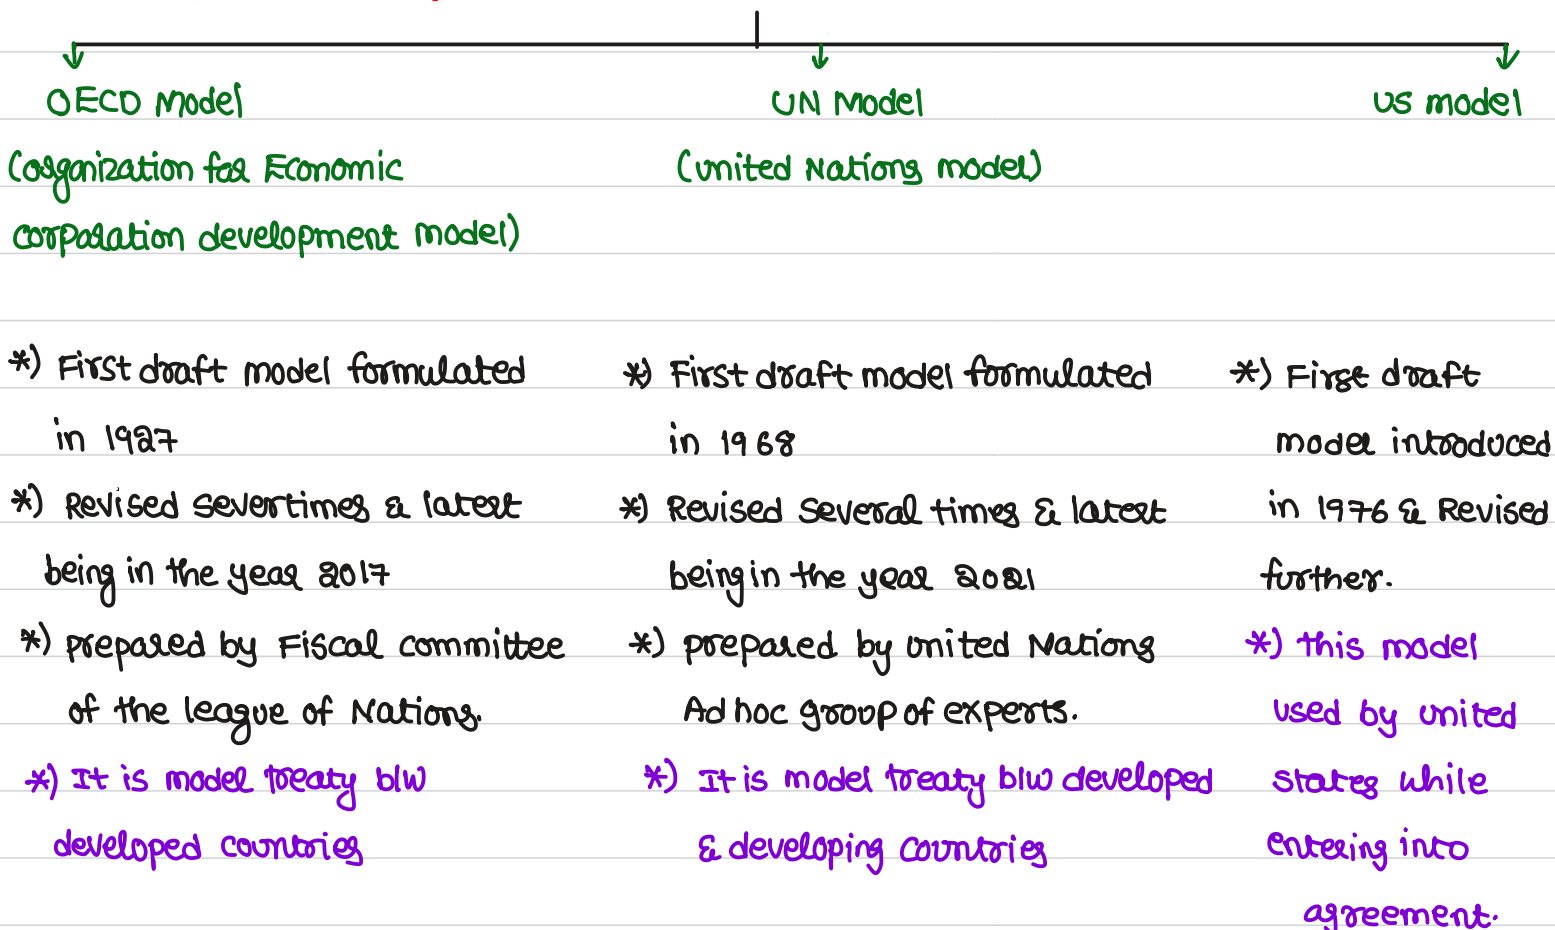 OECD Model
(organization for Economic
corporation development model)
*) First draft model formulated
in 1927
*) Revised severtimes & latest
being in the year 2017
*) prepared by Fiscal committee
of the league of Nations.
*) It is model treaty b/w
developed countries
UN Model
(united Nations model)
*) First draft model formulated
in 1968
*) Revised several times & latest
being in the year 2021
*) prepared by united Nations
Ad hoc group of experts.
*) It is model treaty b/w developed
& developing countries
US model
*) First draft
model introduced
in 1976 & Revised
further.
*) this model
used by united
states while
entering into
agreement.